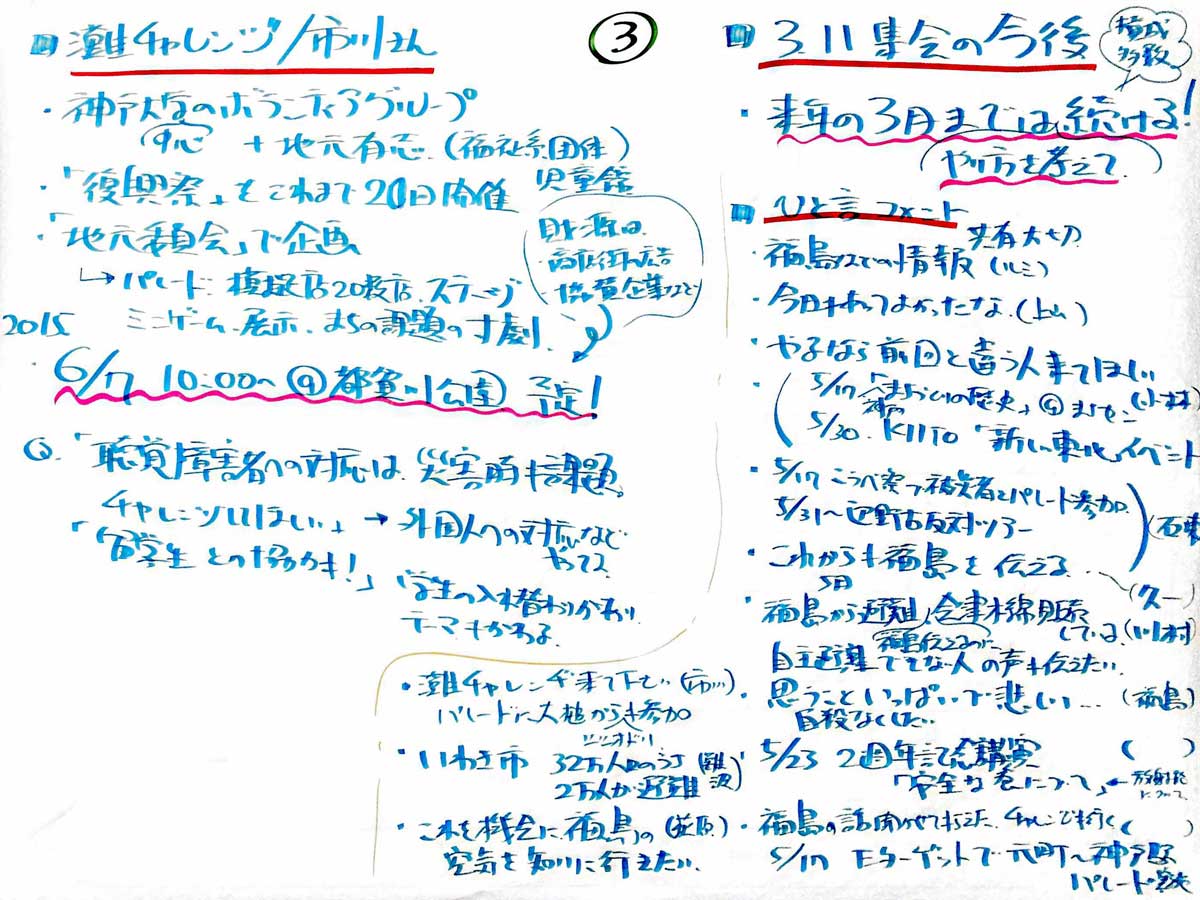 灘チャレンジ/市川さん
・神戸大学のボランティアグループ
中心 + 地元有志(福祉系団体)
児童館
・「復興祭」をこれまで20回開催
・「地元委員会」で企画
財源は
商店街広告
協賛企業など
↳ パレード、模擬店20数店、ステージ
ミニゲーム、展示、まちの課題の寸劇
2015
・6/7 10:00〜@都賀川公園 予定!
Q.「聴覚障害者への対応は、災害時も課題。
チャレンジしてほしい」→外国人への対応など
やってる
「留学生との協力も!」
「学生の入れ替わりがあり
テーマもかわる
③
311集会の今後
賛成多数
・来年の3月までは続ける!
(やり方を考えて)
ひと言コメント
・福島などの情報 共有大切
・今日来れてよかったな。(上山)
・やるなら前回と違う人来てほしい
・5/17 「神戸まちづくりの歴史」@まちセン (小林)
5/30. KIITO 「新しい東北」イベント
・5/17 こうべ祭り 被災者とパレード参加
5/31〜辺野古反対ツアー
・これからも福島を伝える (久一)
・福島から避難、5月会津木綿販売
している(川村)
福島伝えるために
自主避難でてない人の声も伝えたい
・思うこといっぱいで悲しい… (福島)
自殺なくしたい
・5/23 2周年記念講演 ( )
「安全な巻について」←放射能について
・福島の話聞かせて行えた、チャレンジも行く ( )
5/17 Eターゲットで元町〜神戸駅
パレード
・灘チャレンジ来て下さい(市川)
パレードに大槌からも参加
・いわき市 32万人口のうち (難波)
2万人が避難
・これを機会に福島の (萩原)
空気を知りに行きたい